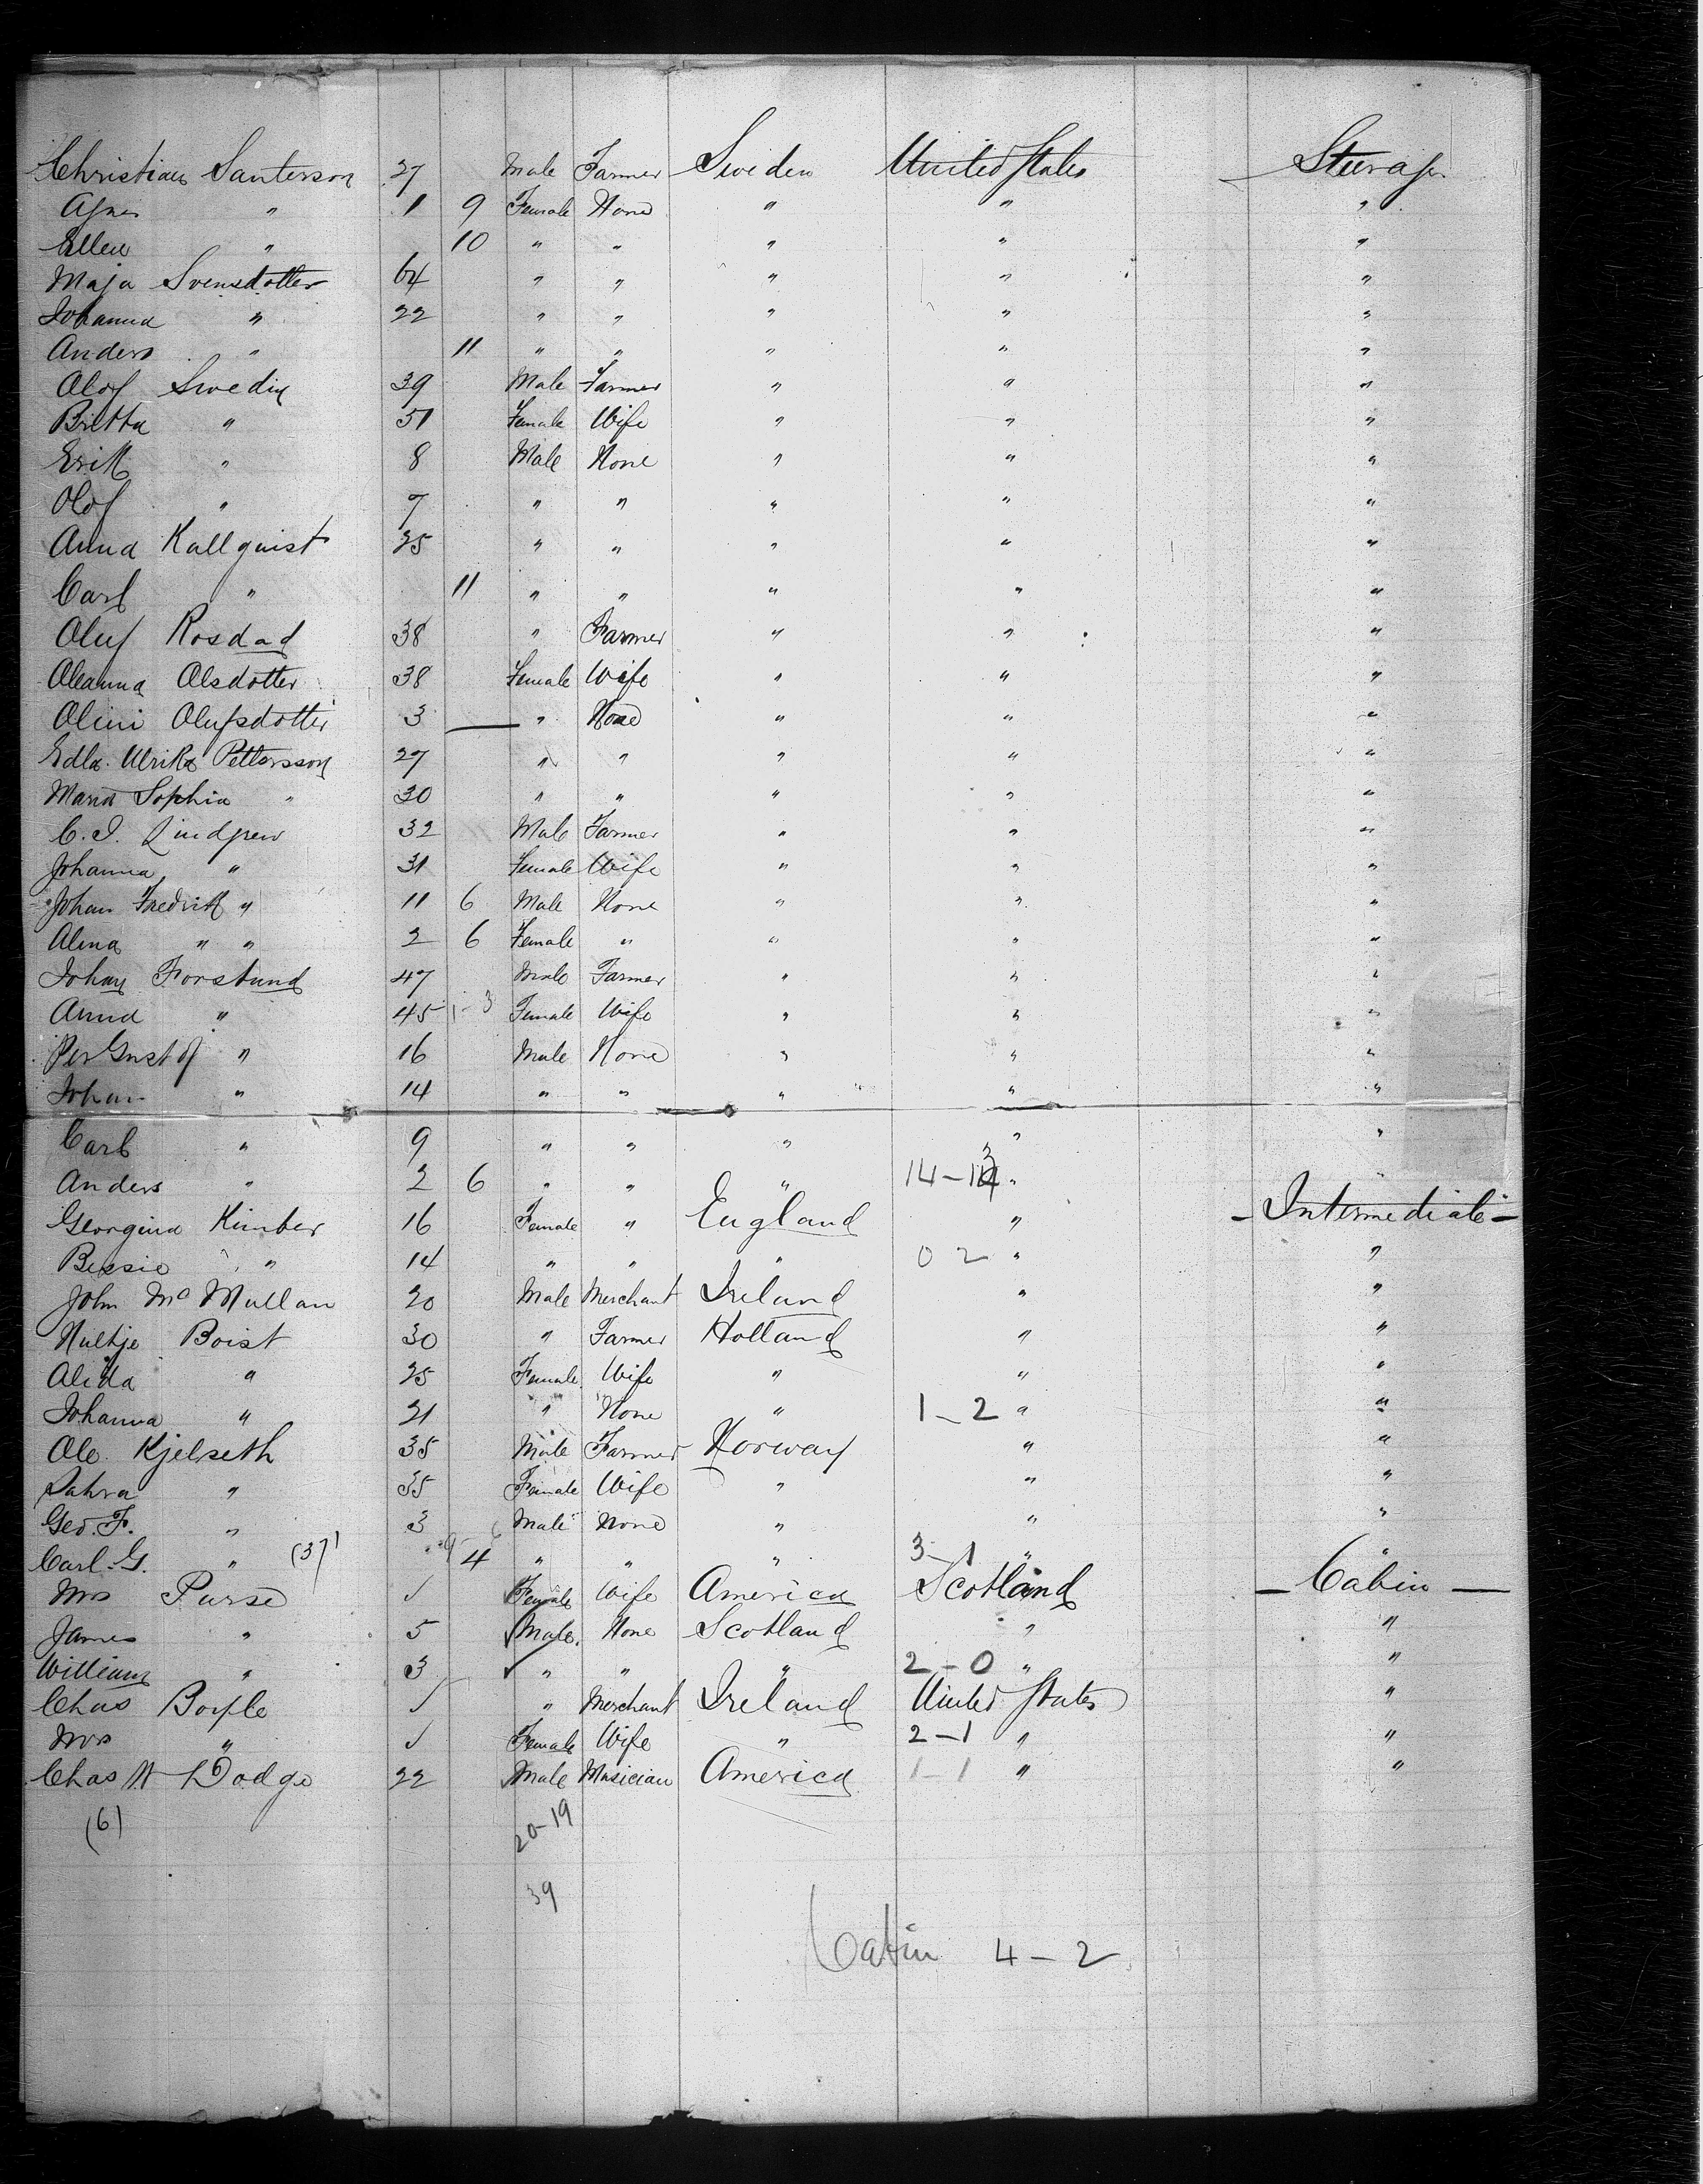 Christian Santerson 27 Male Farmer Sweden United States Steerage
Agnes " 1 9 Female None " " "
Ellen " 10 " " " " "
Maja Svensdotter 64 " " " " "
Johanna " 22 " " " " "
Anders " 11 " " " " "
Olof Swedin 39 Male Farmer " " "
Britta " 51 Female Wife " " "
Erik " 8 Male None " " "
Olof " 7 " " " " "
Anna Kallquist 25 " " " " "
Carl " 11 " " " " "
Oluf Rosdad 38 " Farmer " " "
Oleanna Olsdotter 38 Female Wife " " "
Olini Olufsdotter 3 — " None " " "
Edla Ulrika Pettersson 27 " " " " "
Maria Sophia " 30 " " " " "
C. I. Lindgren 32 Male Farmer " " "
Johanna " 31 Female Wife " " "
Johan Fredrik " 11 6 Male None " " "
Alma " " 2 6 Female " " " "
Johan Forslund 47 Male Farmer " " "
Anna " 45 1-3 Female Wife " " "
Per Gustof " 16 Male None " " "
Johan " 14 " " " " "
Carl " 9 " " " " "
Anders " 2 6 " " " 14-13 " "
Georgina Kimber 16 Female " England " - Intermediate -
Bessie " 14 " " " 0 2 " "
John McMullan 20 Male Merchant Ireland " "
Boist 30 " Farmer Holland " "
Alida " 25 Female Wife " " "
Johanna " 21 " None " 1-2 " "
Ole Kjelseth 35 Male Farmer Norway " "
Sahra " 35 Female Wife " " "
Geo. F. " 3 Male None " " "
Carl G. " (37) 4 " " " 3-1 " "
Mrs Purse ✓ Female Wife America Scotland — Cabin —
James " 5 ✓ Male None Scotland " "
William " 3 ✓ " " " 2-0 " "
Chas Boyle ✓ " Merchant Ireland United States "
Mrs " ✓ Female Wife " 2-1 " "
Chas W Dodge 22 Male Musician America 1-1 " "
(6) 20-19
39
Cabin 4-2